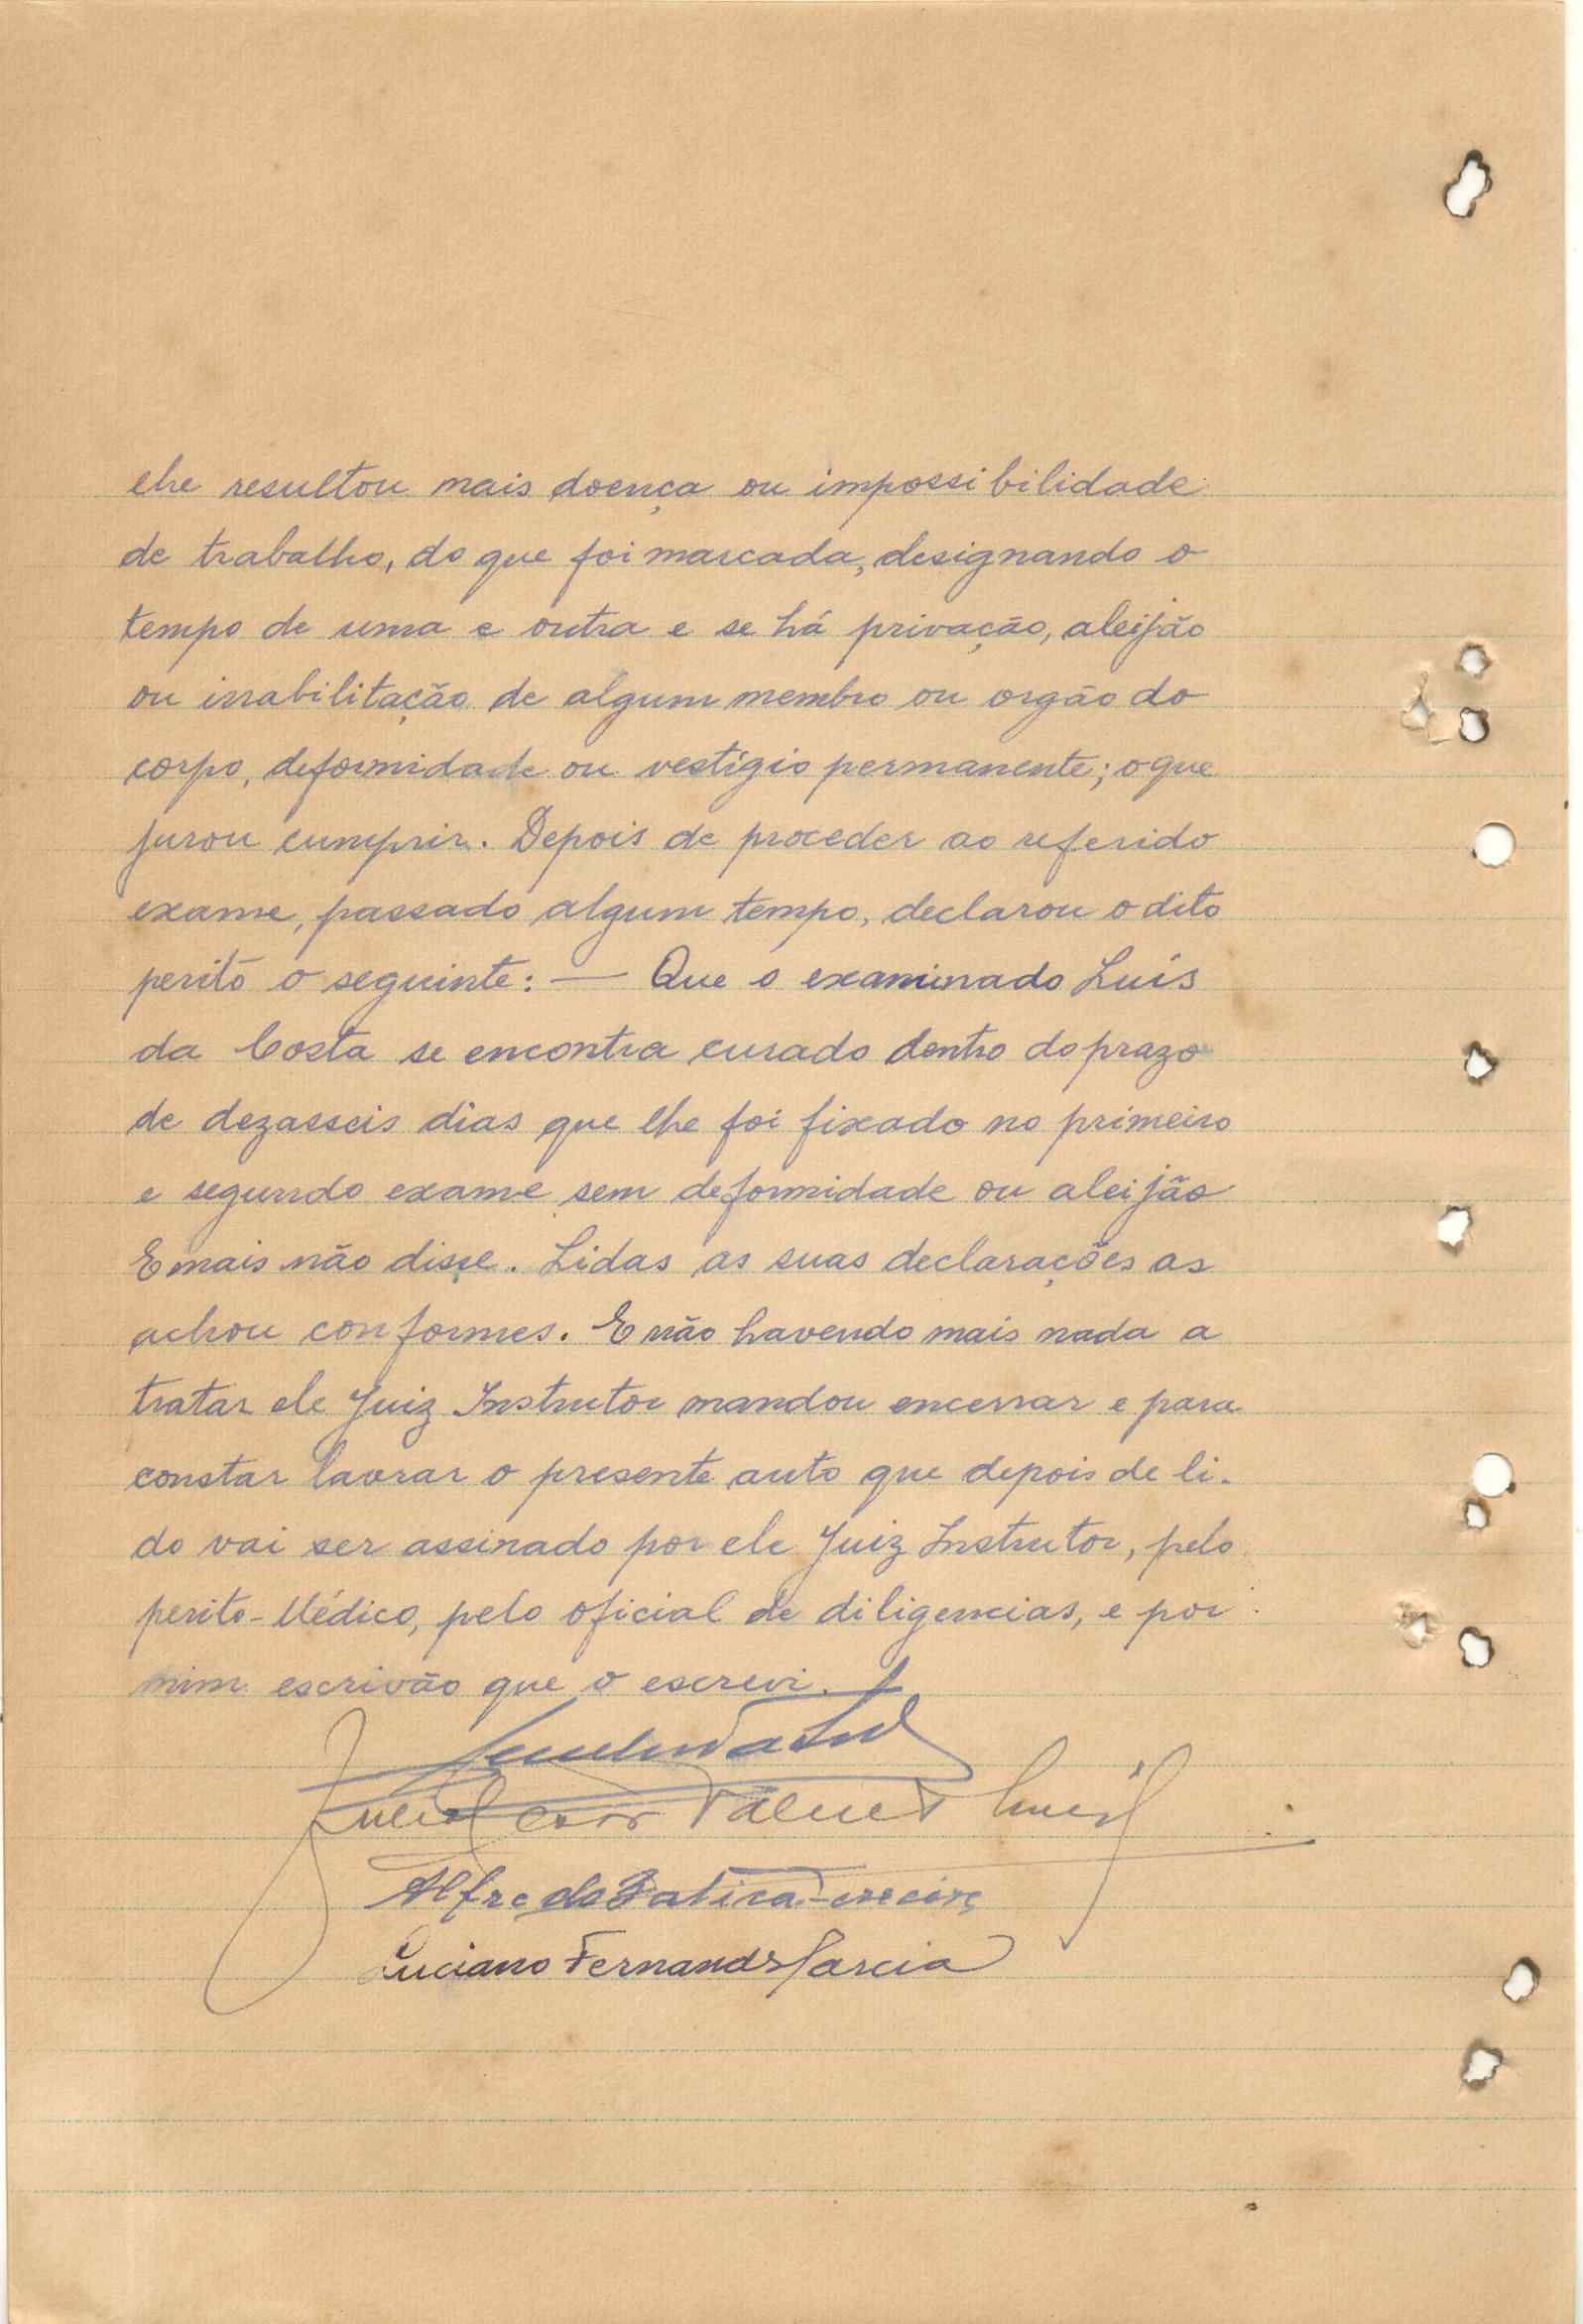 lhe resultou mais doença ou impossibilidade
de trabalho, do que foi marcada, designando o
tempo de uma e outra e se há privação, aleijão
ou inabilitação de algum membro ou orgão do
corpo, deformidade ou vestígio permanente; o que
jurou cumprir. Depois de proceder ao referido
exame, passado algum tempo, declarou o dito
perito o seguinte: — Que o examinado Luís
da Costa se encontra curado dentro do prazo
de dezasseis dias que lhe foi fixado no primeiro
e segundo exame sem deformidade ou aleijão
E mais não disse. Lidas as suas declarações as
achou conformes. E não havendo mais nada a
tratar ele Juiz Instrutor mandou encerrar e para
constar lavrar o presente auto que depois de li-
do vai ser assinado por ele Juiz Instrutor, pelo
perito-Médico, pelo oficial de diligencias, e por
mim escrivão que o escrevi.
Alfredo
Luciano Fernandes Garcia